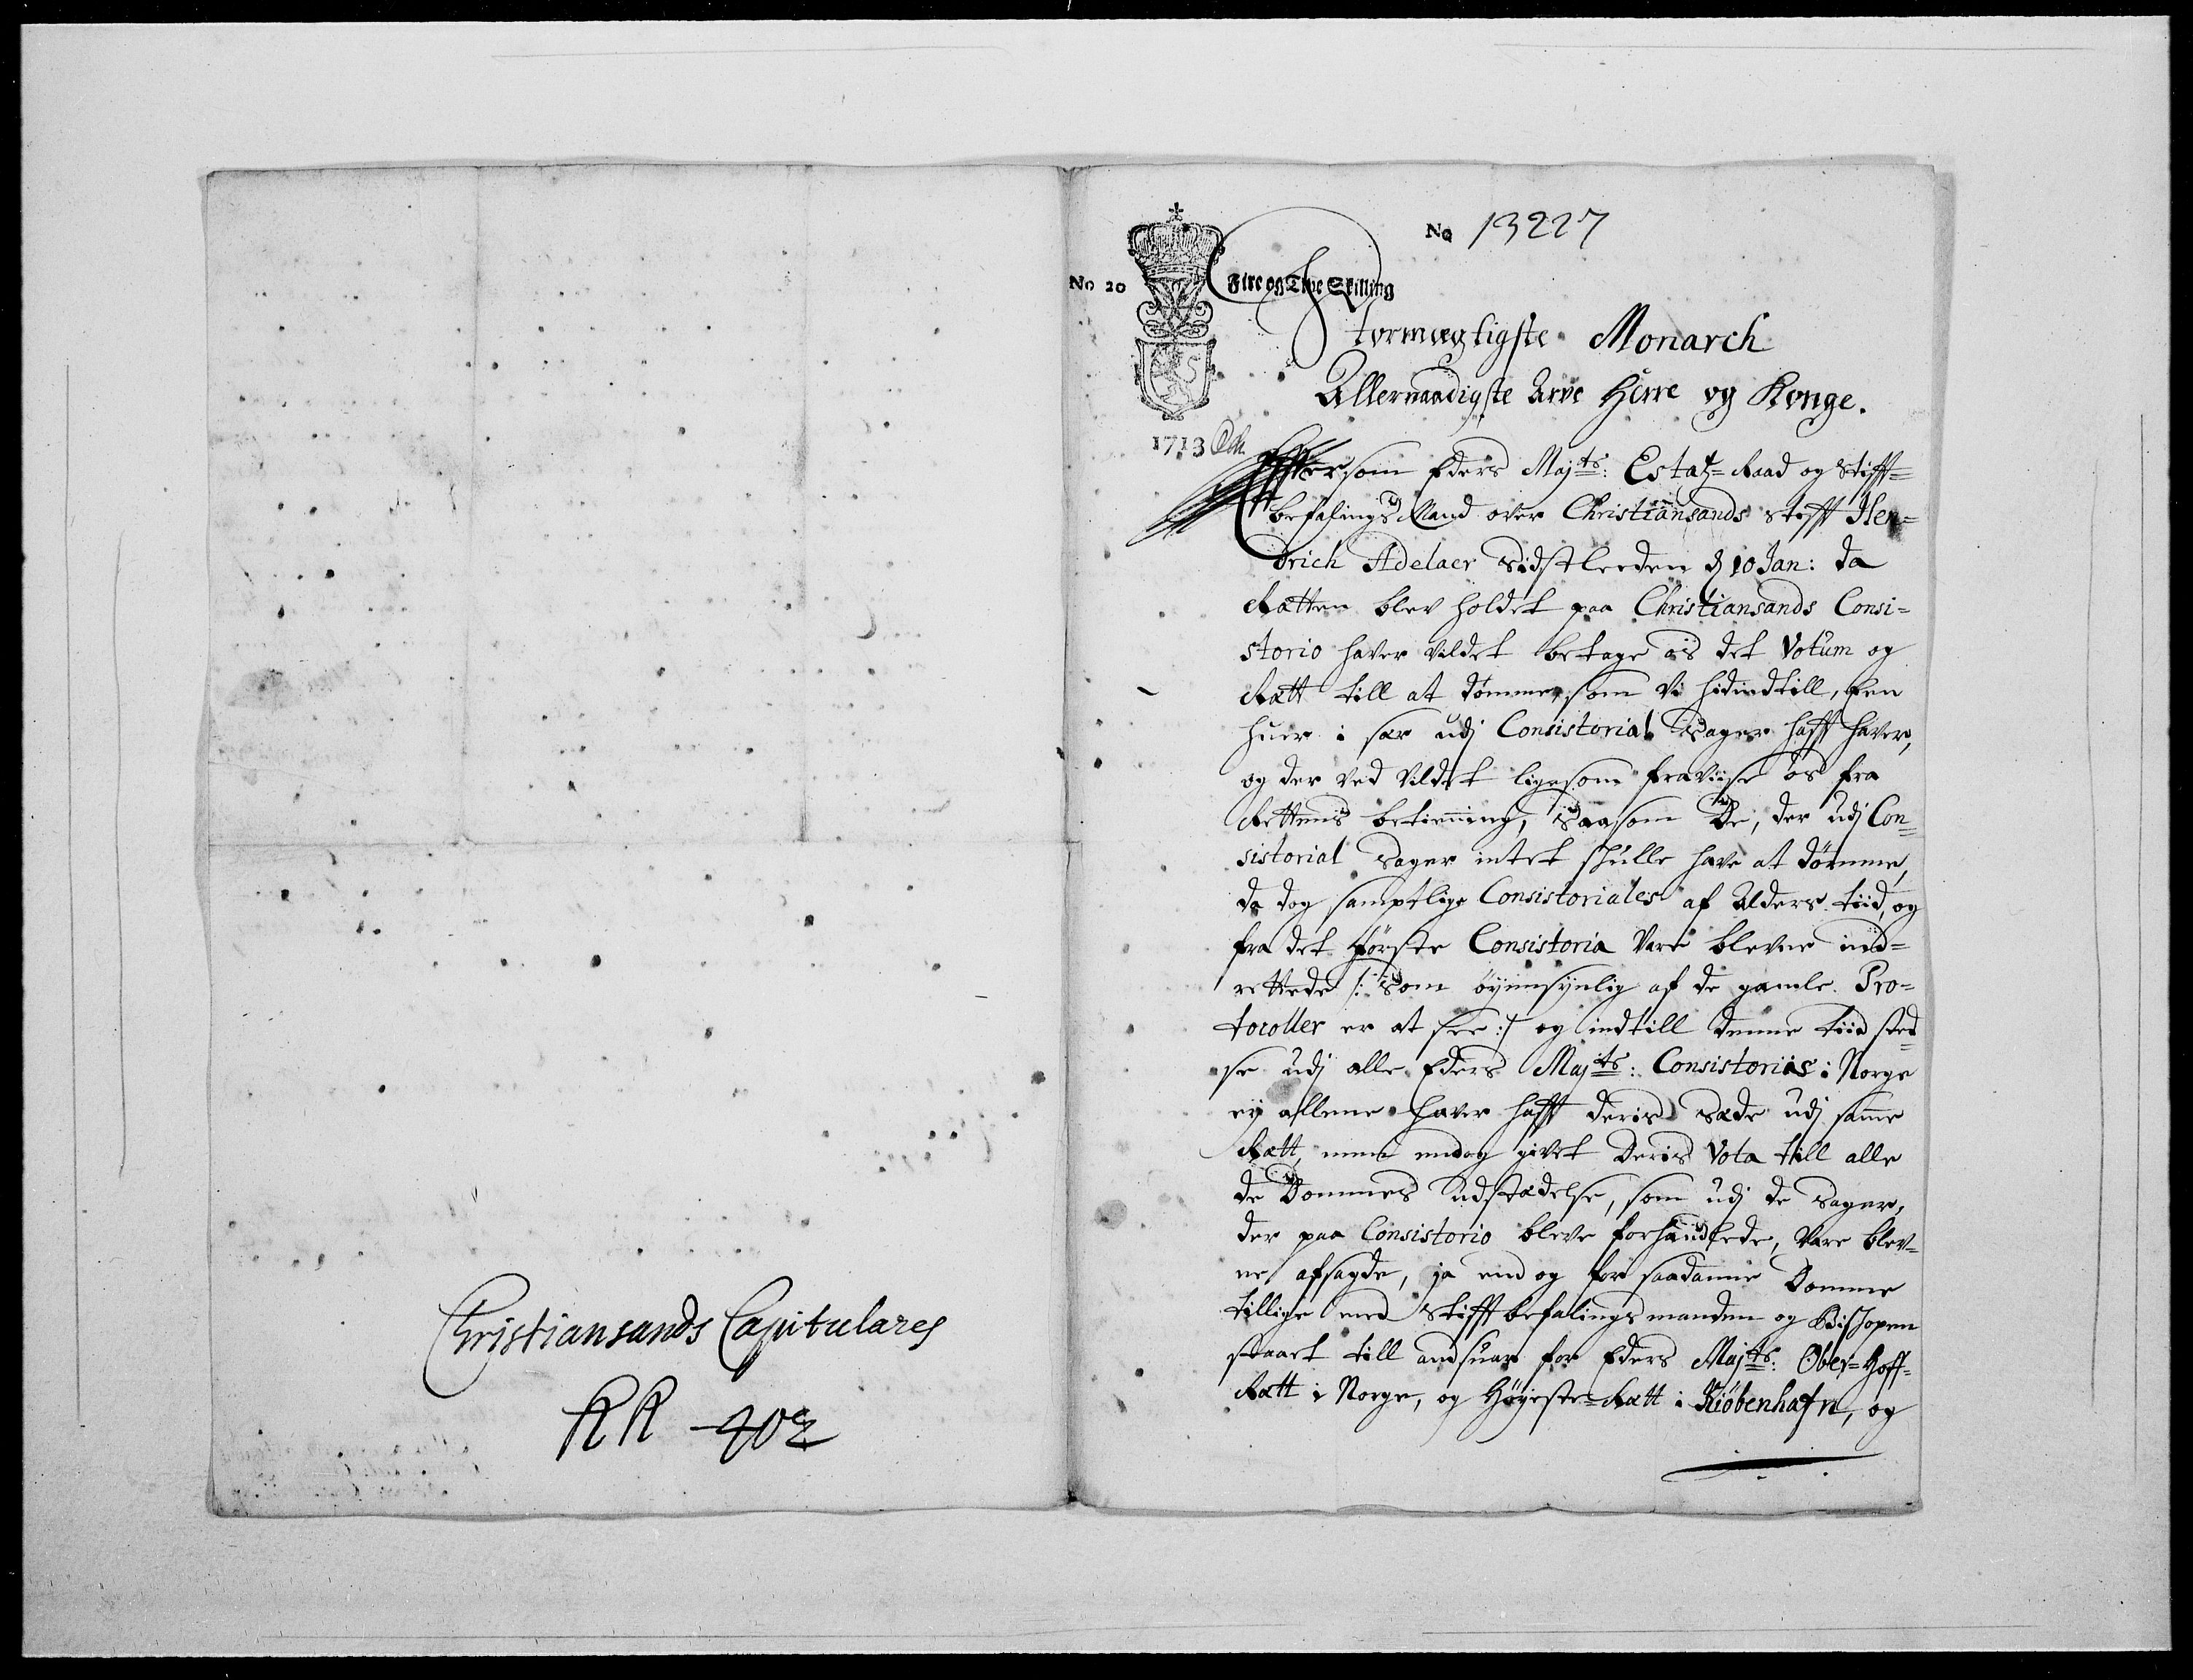 Christiansands Capitulares
RR 402
No 13227
No 20
Fire og Tive Skilling
Stormægtigste Monarch
Allernaadigste Arve Herre og Konge.
1713
Eftersom Eders Majts: Estatz-Raad og Stifft-
befalings Mand over Christiansands Stifft Hen-
drich Adelaer Sidstleeden d 10 Jan: da
Rætten blev holdet paa Christiansands Consi-
storio haver vildet betage os det Votum og
Rætt till at dømme, som vi hidindtill, een
huer i sær udj Consistorial Sager hafft haver,
og der ved vildet ligesom fraviise os fra
Rettens betiening, Saasom De, der udj Con-
sistorial Sager intet skulle have at dømme,
da dog samptlige Consistoriales af Alders tiid, og
fra det første Consistoria vare blevne ind-
rettede /: Som øyensynlig af de gamle Pro-
tocoller er at see :/ og indtill denne tiid sted-
se udj alle Eders Majts: Consistoriis i Norge
ej allene haver hafft deris Sæde udj samme
Rætt, men endog givet Deris Vota till alle
de Dommes Udstædelse, som udj de Sager,
der paa Consistorio bleve forhandlede, vare blev-
ne afsagde, ja end og for saadanne Domme
tillige med Stifftbefalingsmanden og Bishopen
staaet till andsuar for Eders Majts: Ober-Hoff-
Rætt i Norge, og Høyeste-Rætt i Kiøbenhafn, og